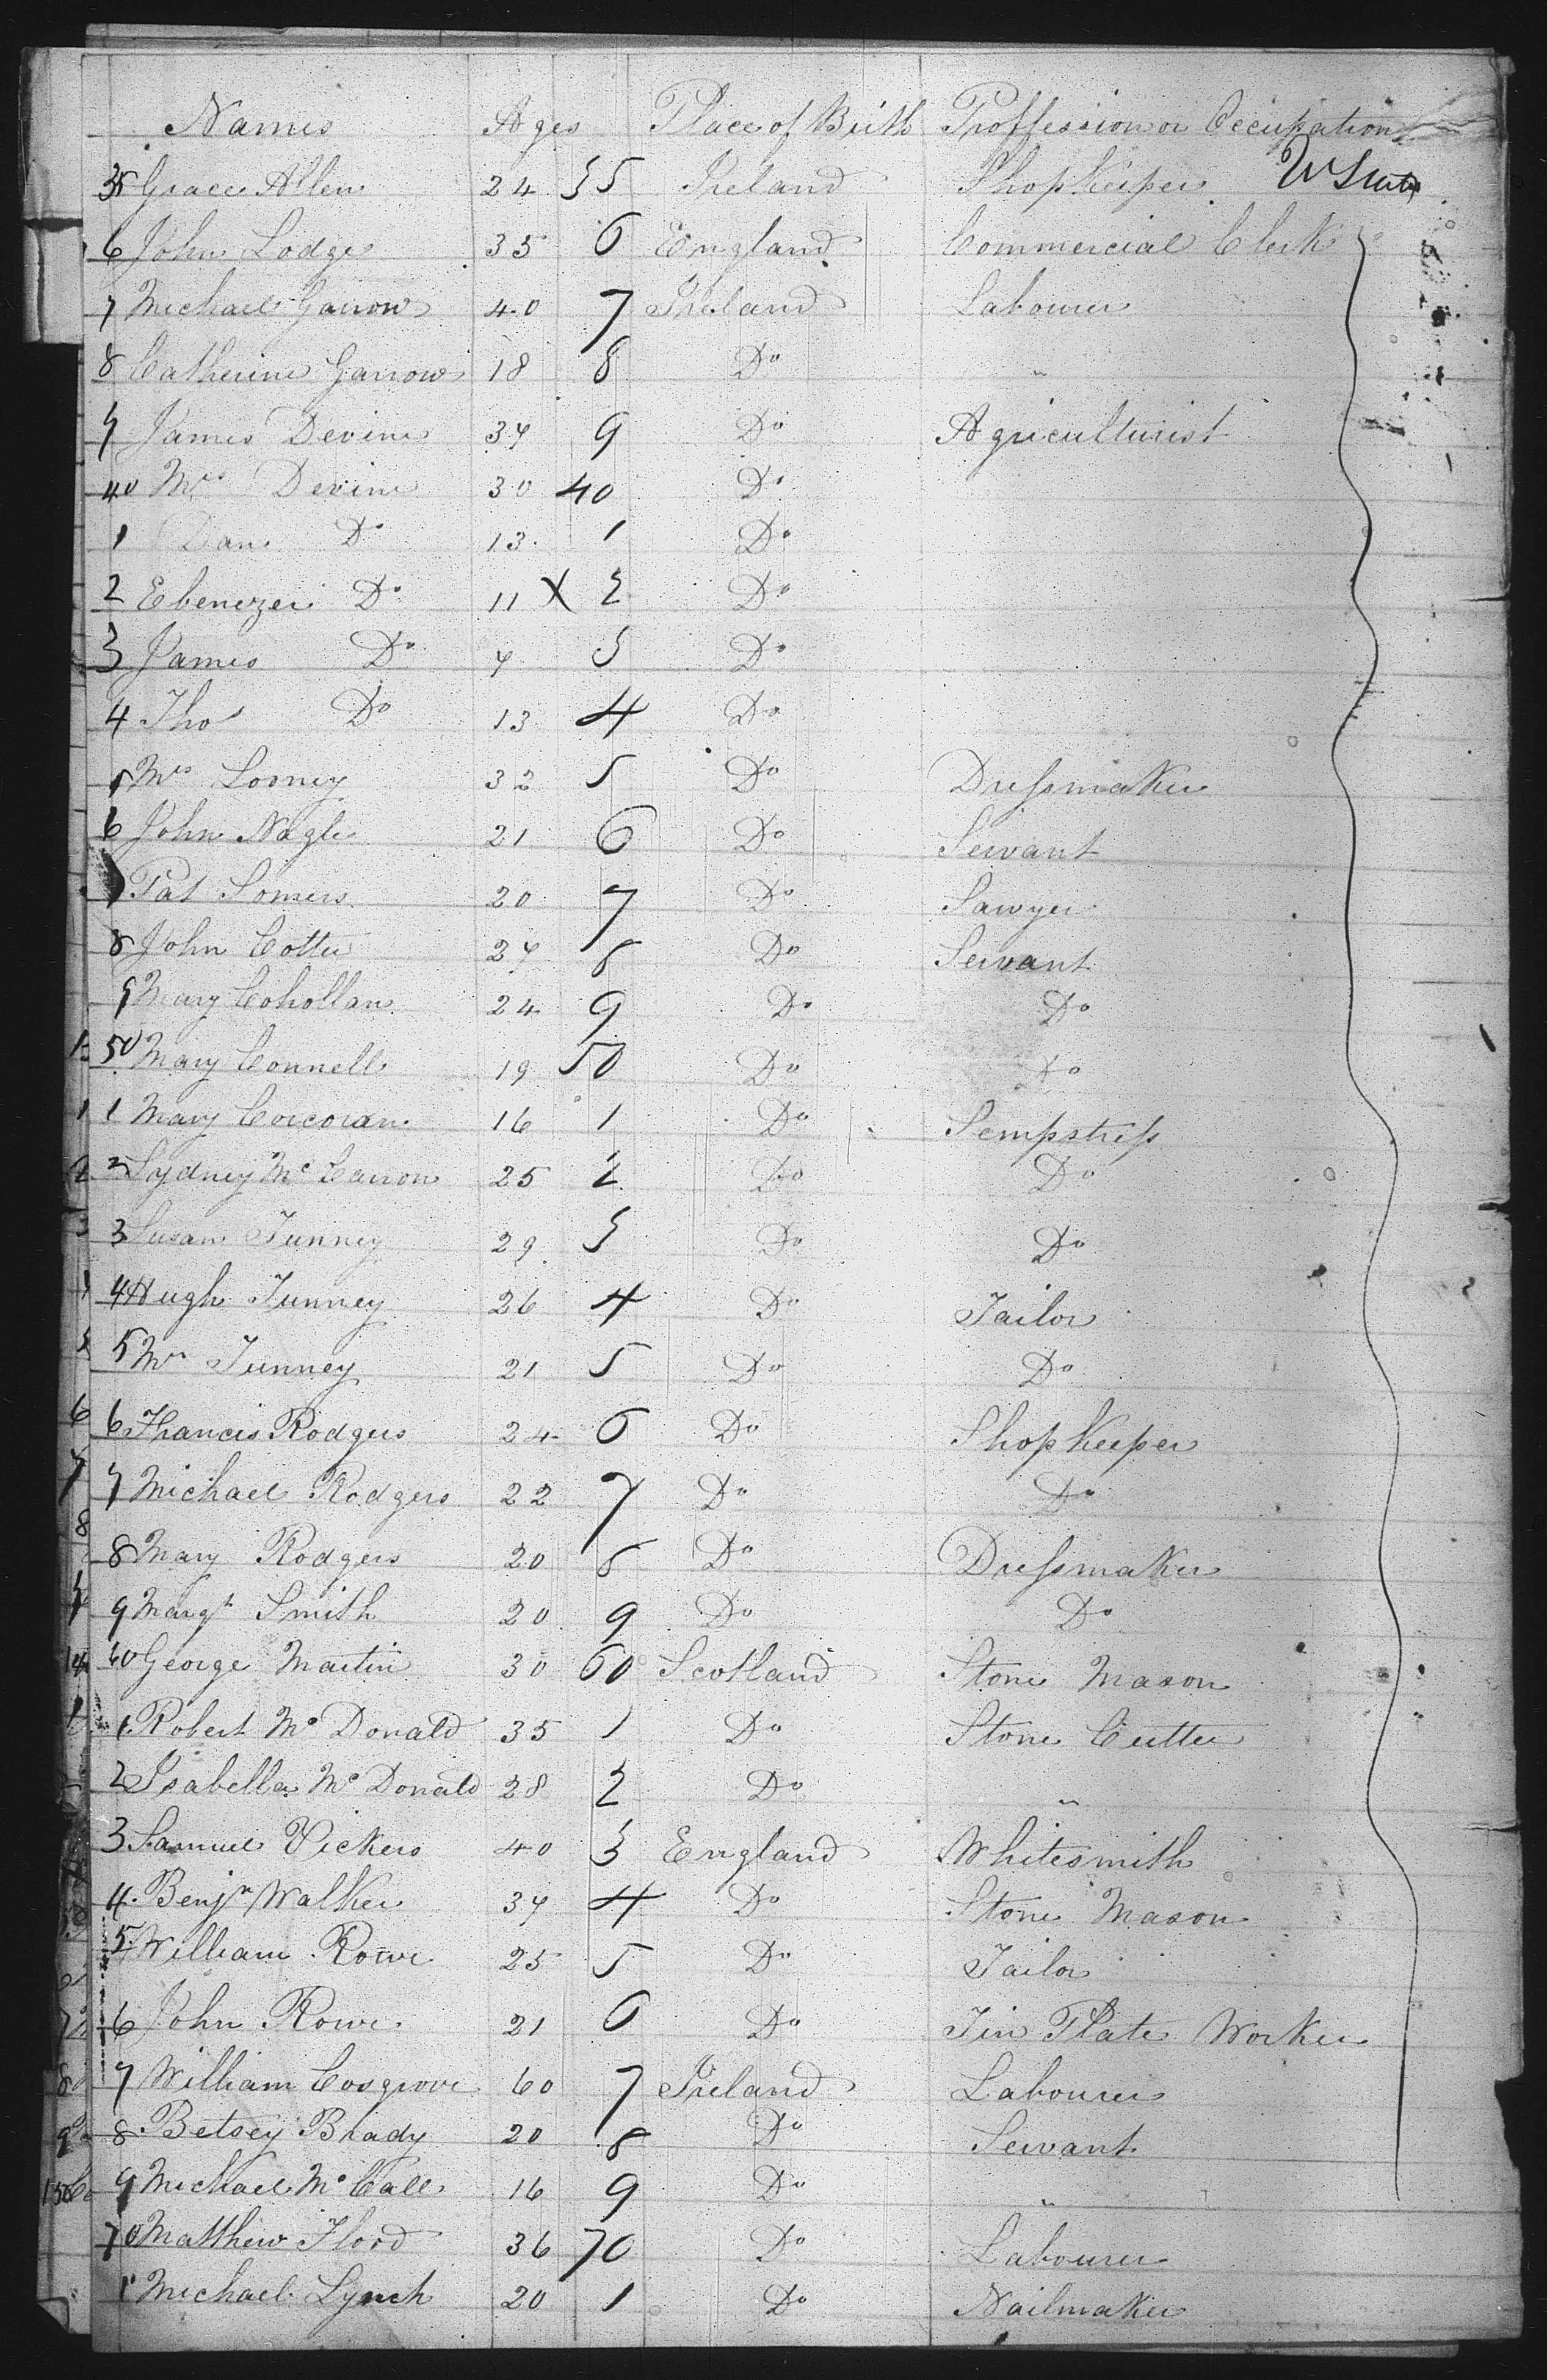 Names Ages Place of Birth Proffession or Occupation
35 Grace Allen 24 35 Ireland Shop Keeper U States
6 John Lodge 35 6 England Commercial Clerk
7 Michael Garrow 40 7 Ireland Labourer
8 Catherine Garrow 18 8 Do "
9 James Devine 37 9 Do Agriculturist
40 Mrs Devine 30 40 Do
1 Jane Do 13 1 Do
2 Ebenezer Do 11 X 2 Do
3 James Do 7 3 Do
4 Thos Do 13 4 Do
5 Mrs Looney 32 5 Do Dressmaker
6 John Nagle 21 6 Do Servant
7 Pat Somers 20 7 Do Sawyer
8 John Cotter 27 8 Do Servant
9 Mary Cohollan 24 9 Do Do
50 Mary Connell 19 50 Do Do
1 Mary Corcoran 16 1 Do Sempstress
2 Sydney Mc Carron 25 2 Do Do
3 Susan Tunney 29 3 Do Do
4 Hugh Tunney 26 4 Do Tailor
5 Mrs Tunney 21 5 Do Do
6 Francis Rodgers 24 6 Do Shop Keeper
7 Michael Rodgers 22 7 Do Do
8 Mary Rodgers 20 8 Do Dressmaker
9 Margt Smith 20 9 Do Do
60 George Martin 30 60 Scotland Stone Mason
1 Robert Mc Donald 35 1 Do Stone Cutter
2 Isabella Mc Donald 28 2 Do "
3 Samuel Vickers 40 3 England Whitesmith
4 Benjn Walker 37 4 Do Stone Mason
5 William Rowe 25 5 Do Tailor
6 John Rowe 21 6 Do Tin Plate Worker
7 William Cosgrove 60 7 Ireland Labourer
8 Betsey Brady 20 8 Do Servant
9 Michael Mc Call 16 9 Do "
70 Matthew Flood 36 70 Do Labourer
1 Michael Lynch 20 1 Do Nailmaker